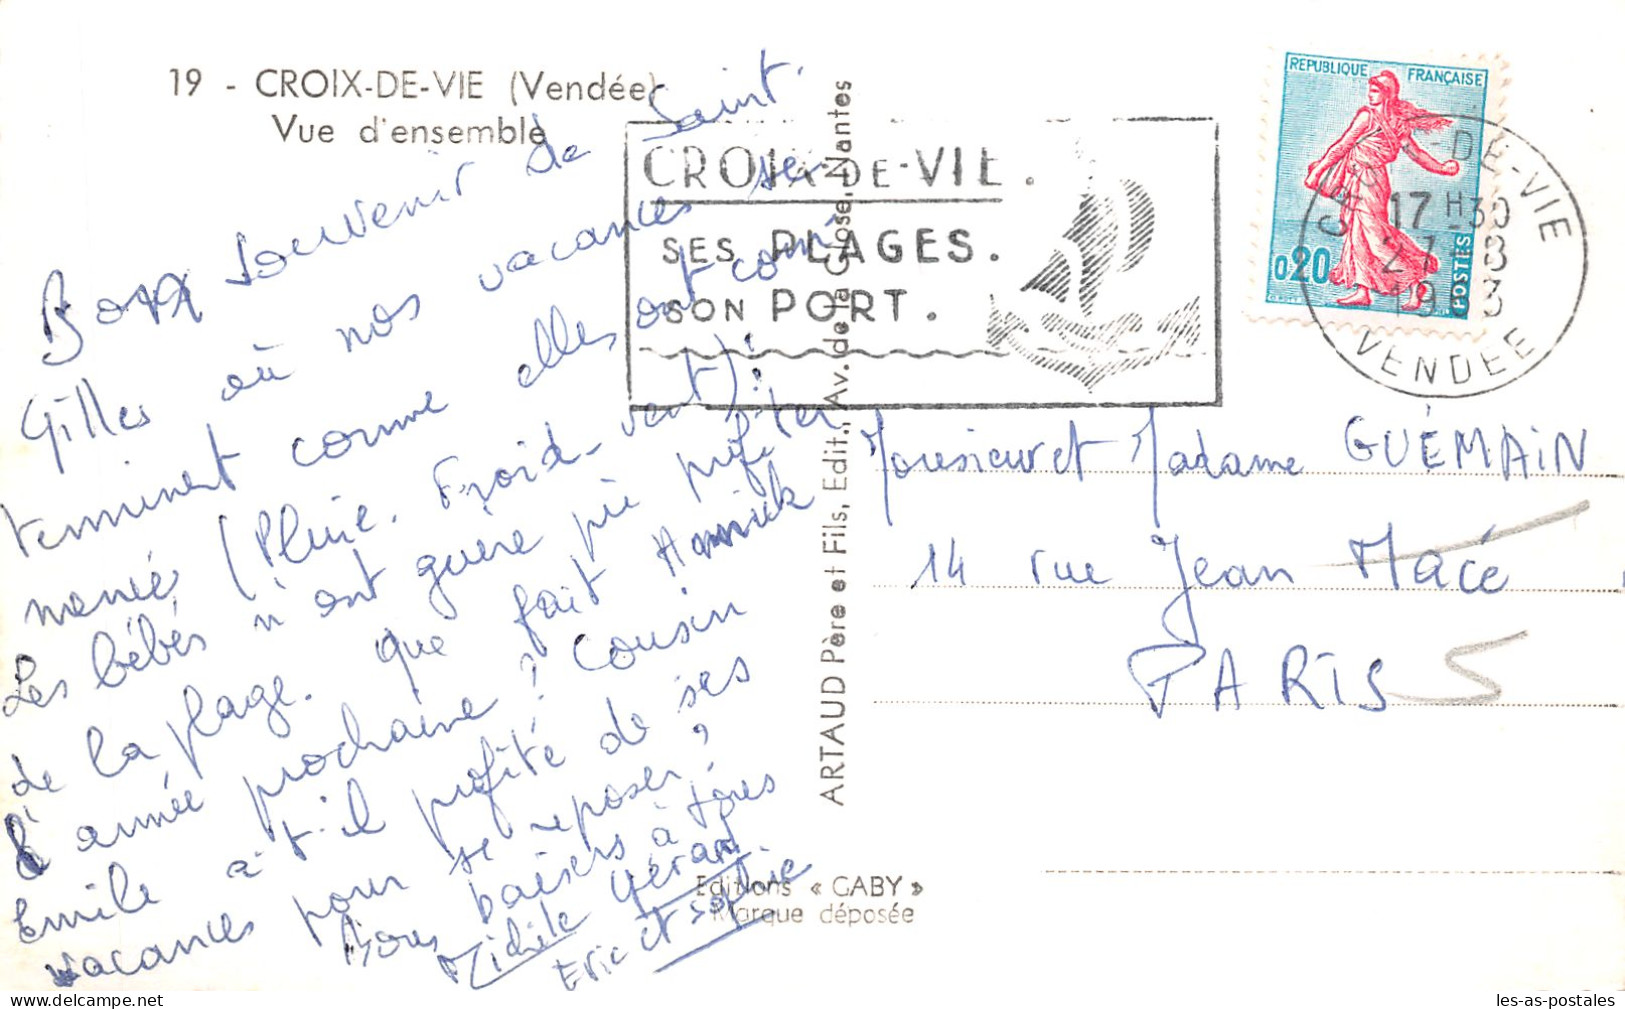 19 - CROIX-DE-VIE (Vendée)
Vue d'ensemble
Bon souvenir de Saint
Gilles où nos vacances se
terminent comme elles ont com
mencé (Pluie. Froid. vent)!
Les bébés n'ont guère pu profiter
de la plage. Que fait Annick
l'année prochaine? Cousin
Emile a-t-il profité de ses
vacances pour se reposer?
Bons baisers à tous
Michèle Gérard
Eric et Sophie
ARTAUD Père et Fils, Edit., Av. de la Close, Nantes
Editions « GABY »
Marque déposée
CROIX-DE-VIE.
SES PLAGES.
SON PORT.
REPUBLIQUE FRANÇAISE
0,20
POSTES
-DE-VIE
17 H 30
27-8
1963
VENDEE
Monsieur et Madame GUÉMAIN
14 rue Jean Macé
PARIS
les-as-postales